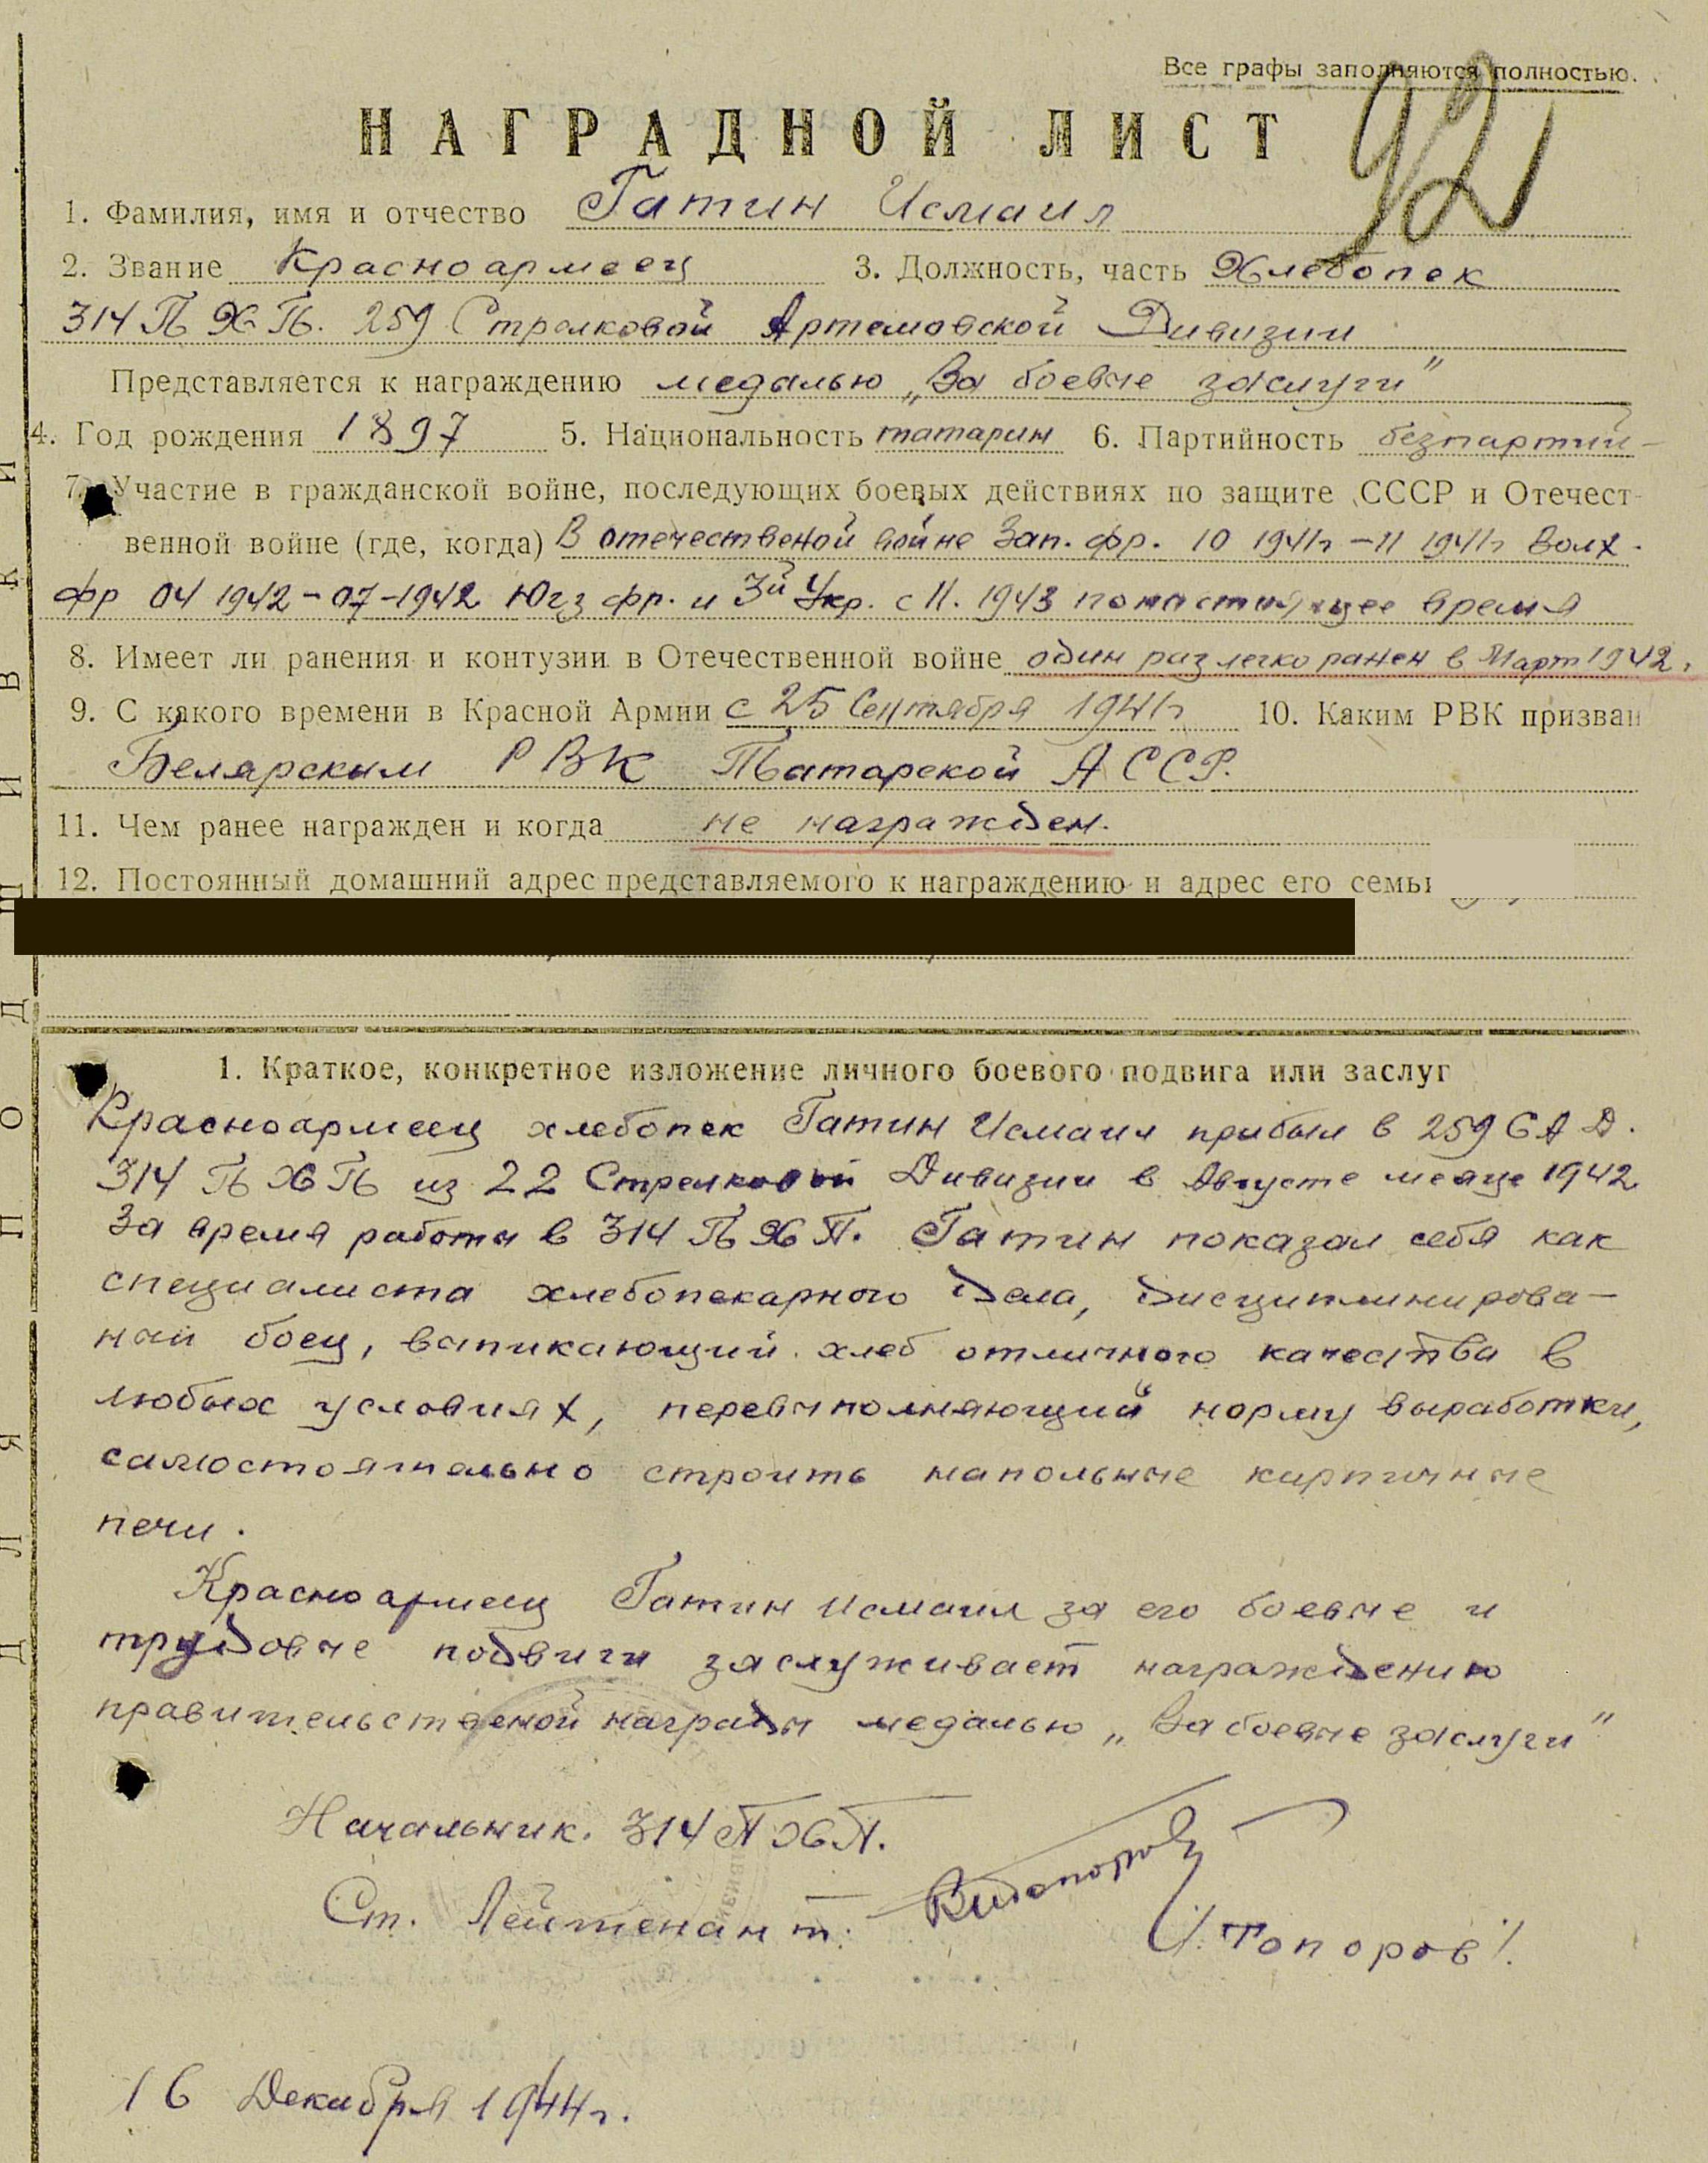 Все графы заполняются полностью.
92
НАГРАДНОЙ ЛИСТ
1. Фамилия, имя и отчество Гатин Исмаил
2. Звание Красноармеец 3. Должность, часть Хлебопек
314 ПХП. 259 Стрелковой Артемовской Дивизии
Представляется к награждению медалью „За боевые заслуги"
4. Год рождения 1897 5. Национальность татарин 6. Партийность безпартий-
7. Участие в гражданской войне, последующих боевых действиях по защите СССР и Отечест-
венной войне (где, когда) В отечественой войне Зап. фр. 10 1941г – 11 1941г Волх.
фр 04 1942 – 07 – 1942 Югз фр. и 3й Укр. с 11. 1943 по настоящее время
8. Имеет ли ранения и контузии в Отечественной войне один раз легко ранен в Март 1942.
9. С какого времени в Красной Армии с 25 Сентября 1941г 10. Каким РВК призван
Белярским РВК Татарской АССР.
11. Чем ранее награжден и когда не награжден.
12. Постоянный домашний адрес представляемого к награждению и адрес его семьи
1. Краткое, конкретное изложение личного боевого подвига или заслуг
Красноармеец хлебопек Гатин Исмаил прибыл в 259 САД.
314 ПХП из 22 Стрелковой Дивизии в Августе месяце 1942
За время работы в 314 ПХП. Гатин показал себя как
специалиста хлебопекарного дела, дисциплинирова-
ный боец, выпикающий хлеб отличного качества в
любых условиях, перевыполняющий норму выработки,
самостоятельно строить напольные кирпичные
печи.
Красноармеец Гатин Исмаил за его боевые и
трудовые подвиги заслуживает награждению
правительственой награды медалью „За боевые заслуги"
Начальник. 314 ПХП.
Ст. Лейтенант.
/Топоров/.
16 Декабря 1944г.
ДЛЯ ПОДШИВКИ